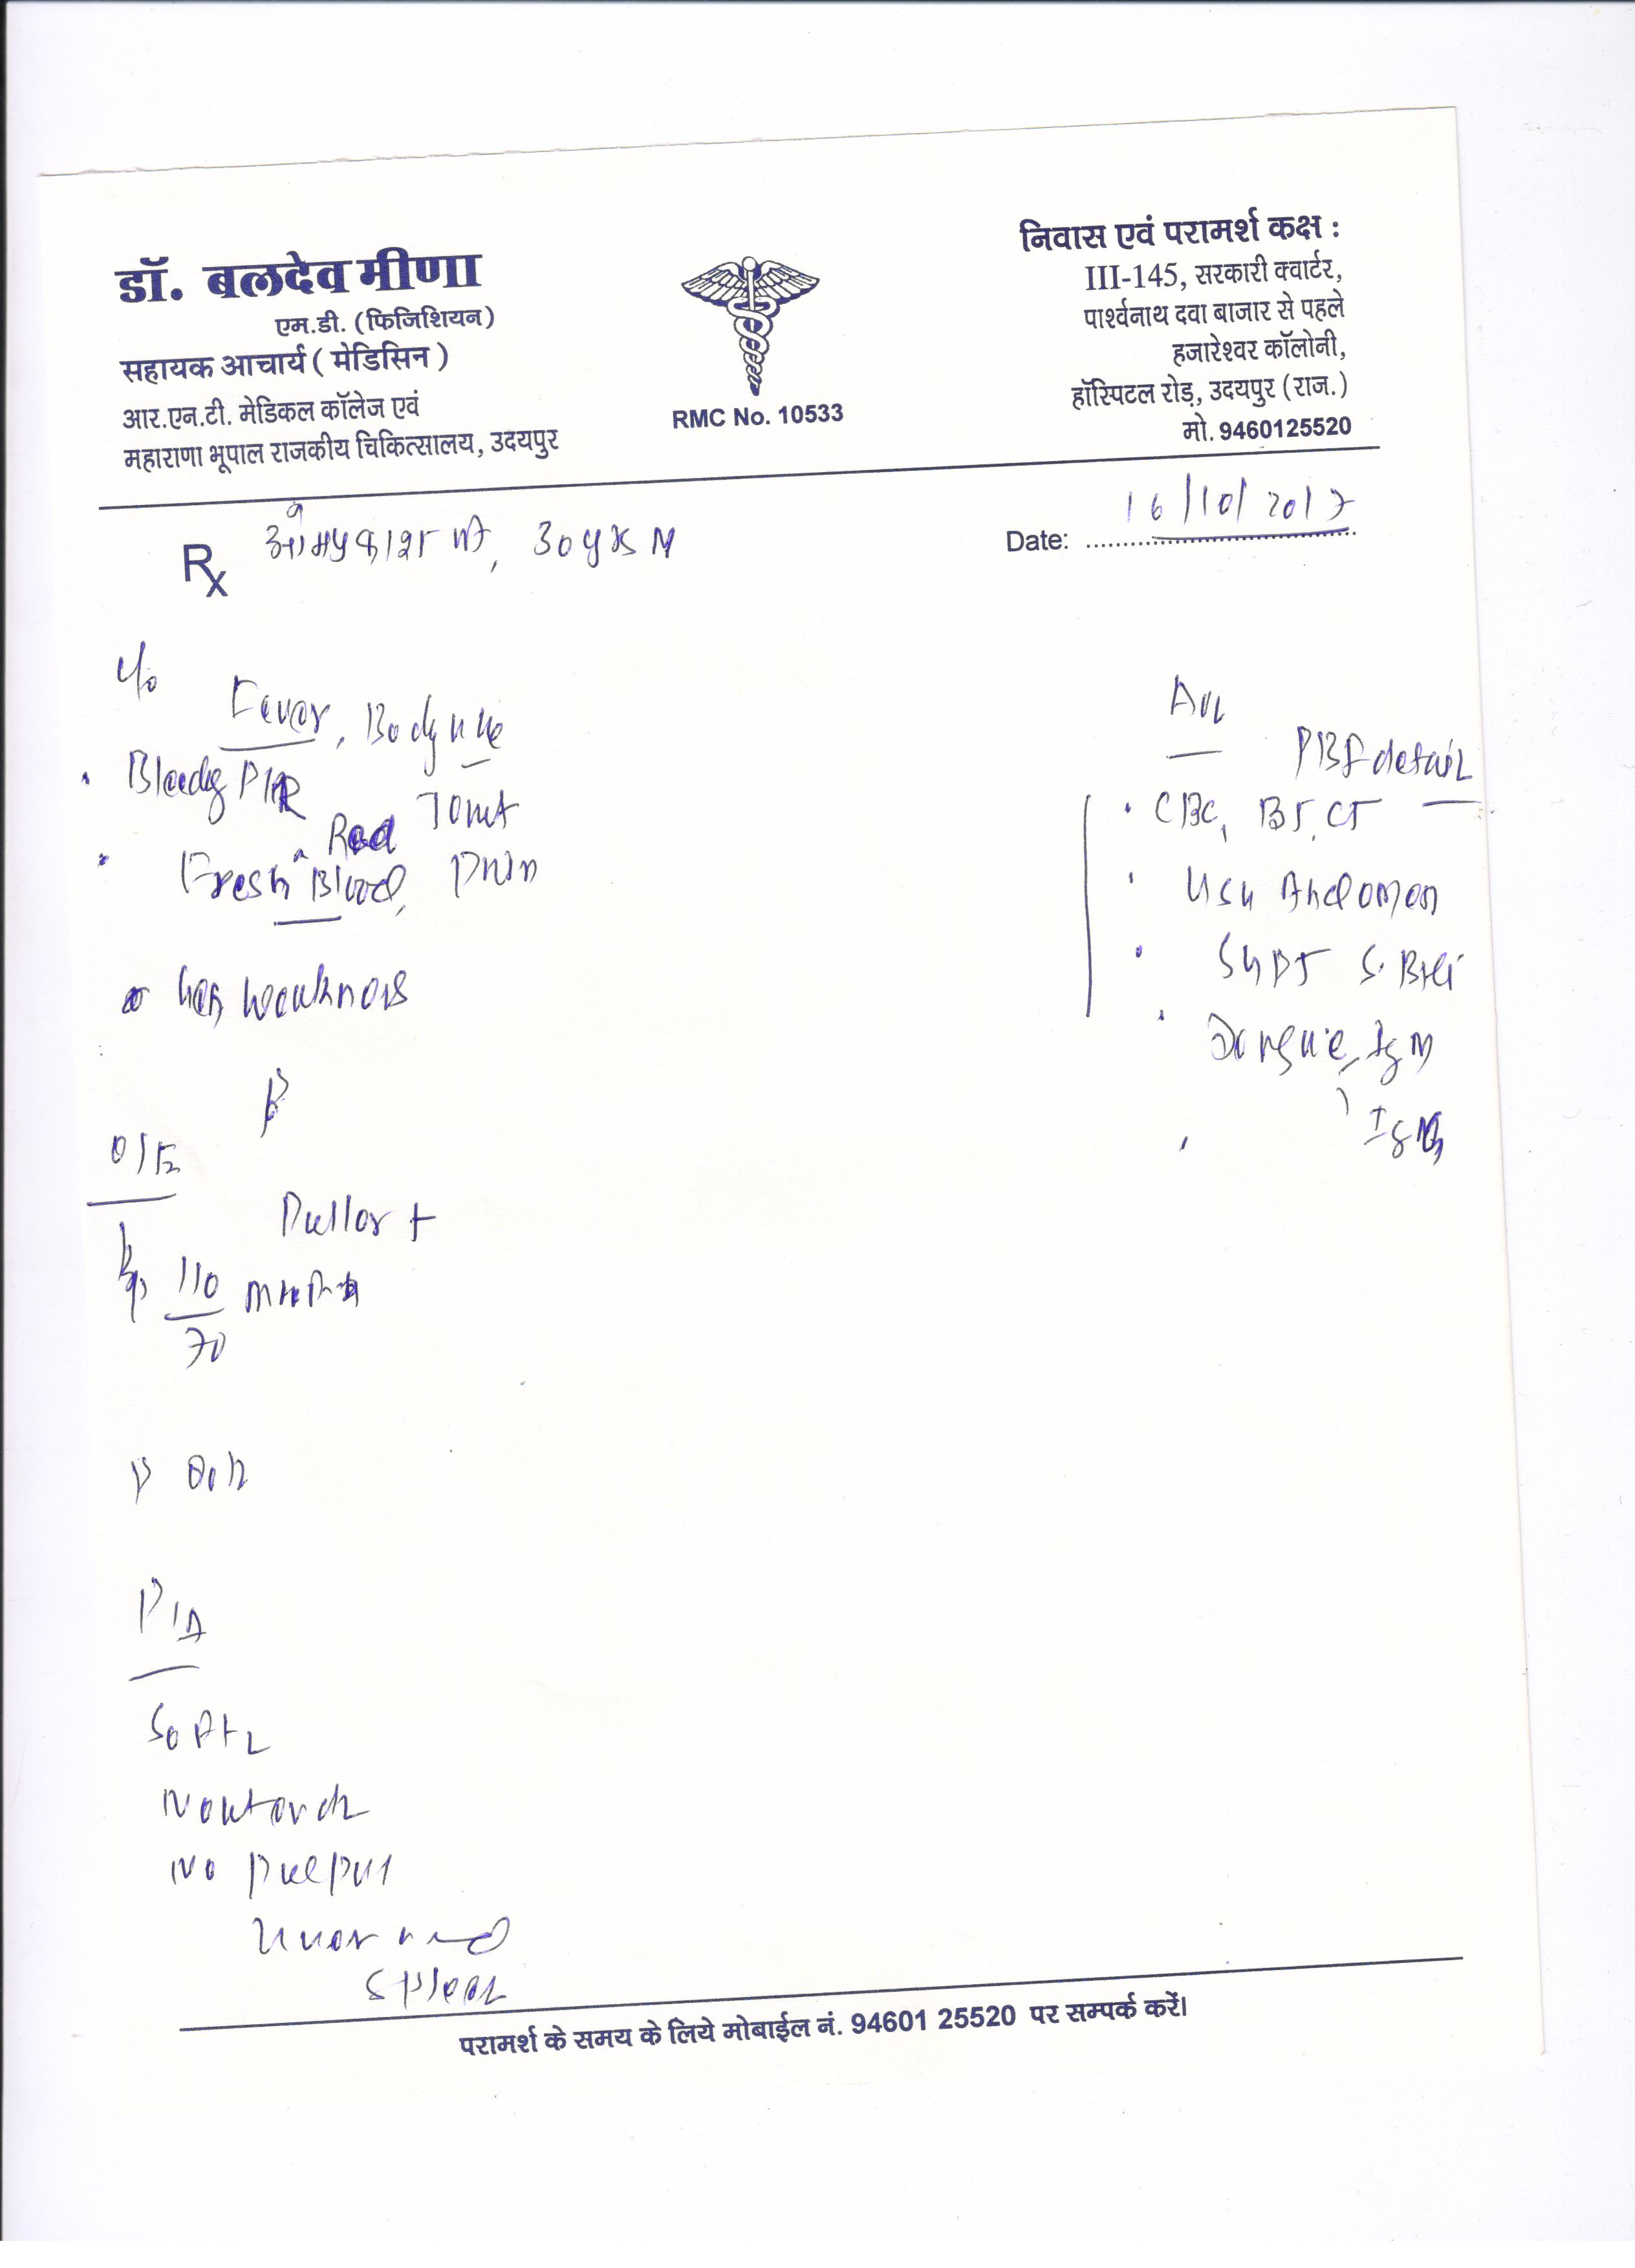 डॉ. बलदेव मीणा
एम.डी. (फिजिशियन)
सहायक आचार्य ( मेडिसिन )
आर.एन.टी. मेडिकल कॉलेज एवं
महाराणा भूपाल राजकीय चिकित्सालय, उदयपुर
RMC No. 10533
निवास एवं परामर्श कक्ष :
III-145, सरकारी क्वार्टर,
पार्श्वनाथ दवा बाजार से पहले
हजारेश्वर कॉलोनी,
हॉस्पिटल रोड़, उदयपुर (राज.)
मो. 9460125520
Date: 16/10/2017
Rx ओमप्रकाश जी, 30 yrs M
c/o
Fever, Body
Bleeding P/R
Red
Fresh Blood, Pain
weakness
O/E
Pallor +
Bp 110
70
P/A
Soft
No
Spleen
Adv
PBF detail
CBC, BT, CT
USG Abdomen
SGPT S. Bili
Dengue IgM
IgG
परामर्श के समय के लिये मोबाईल नं. 94601 25520 पर सम्पर्क करें।